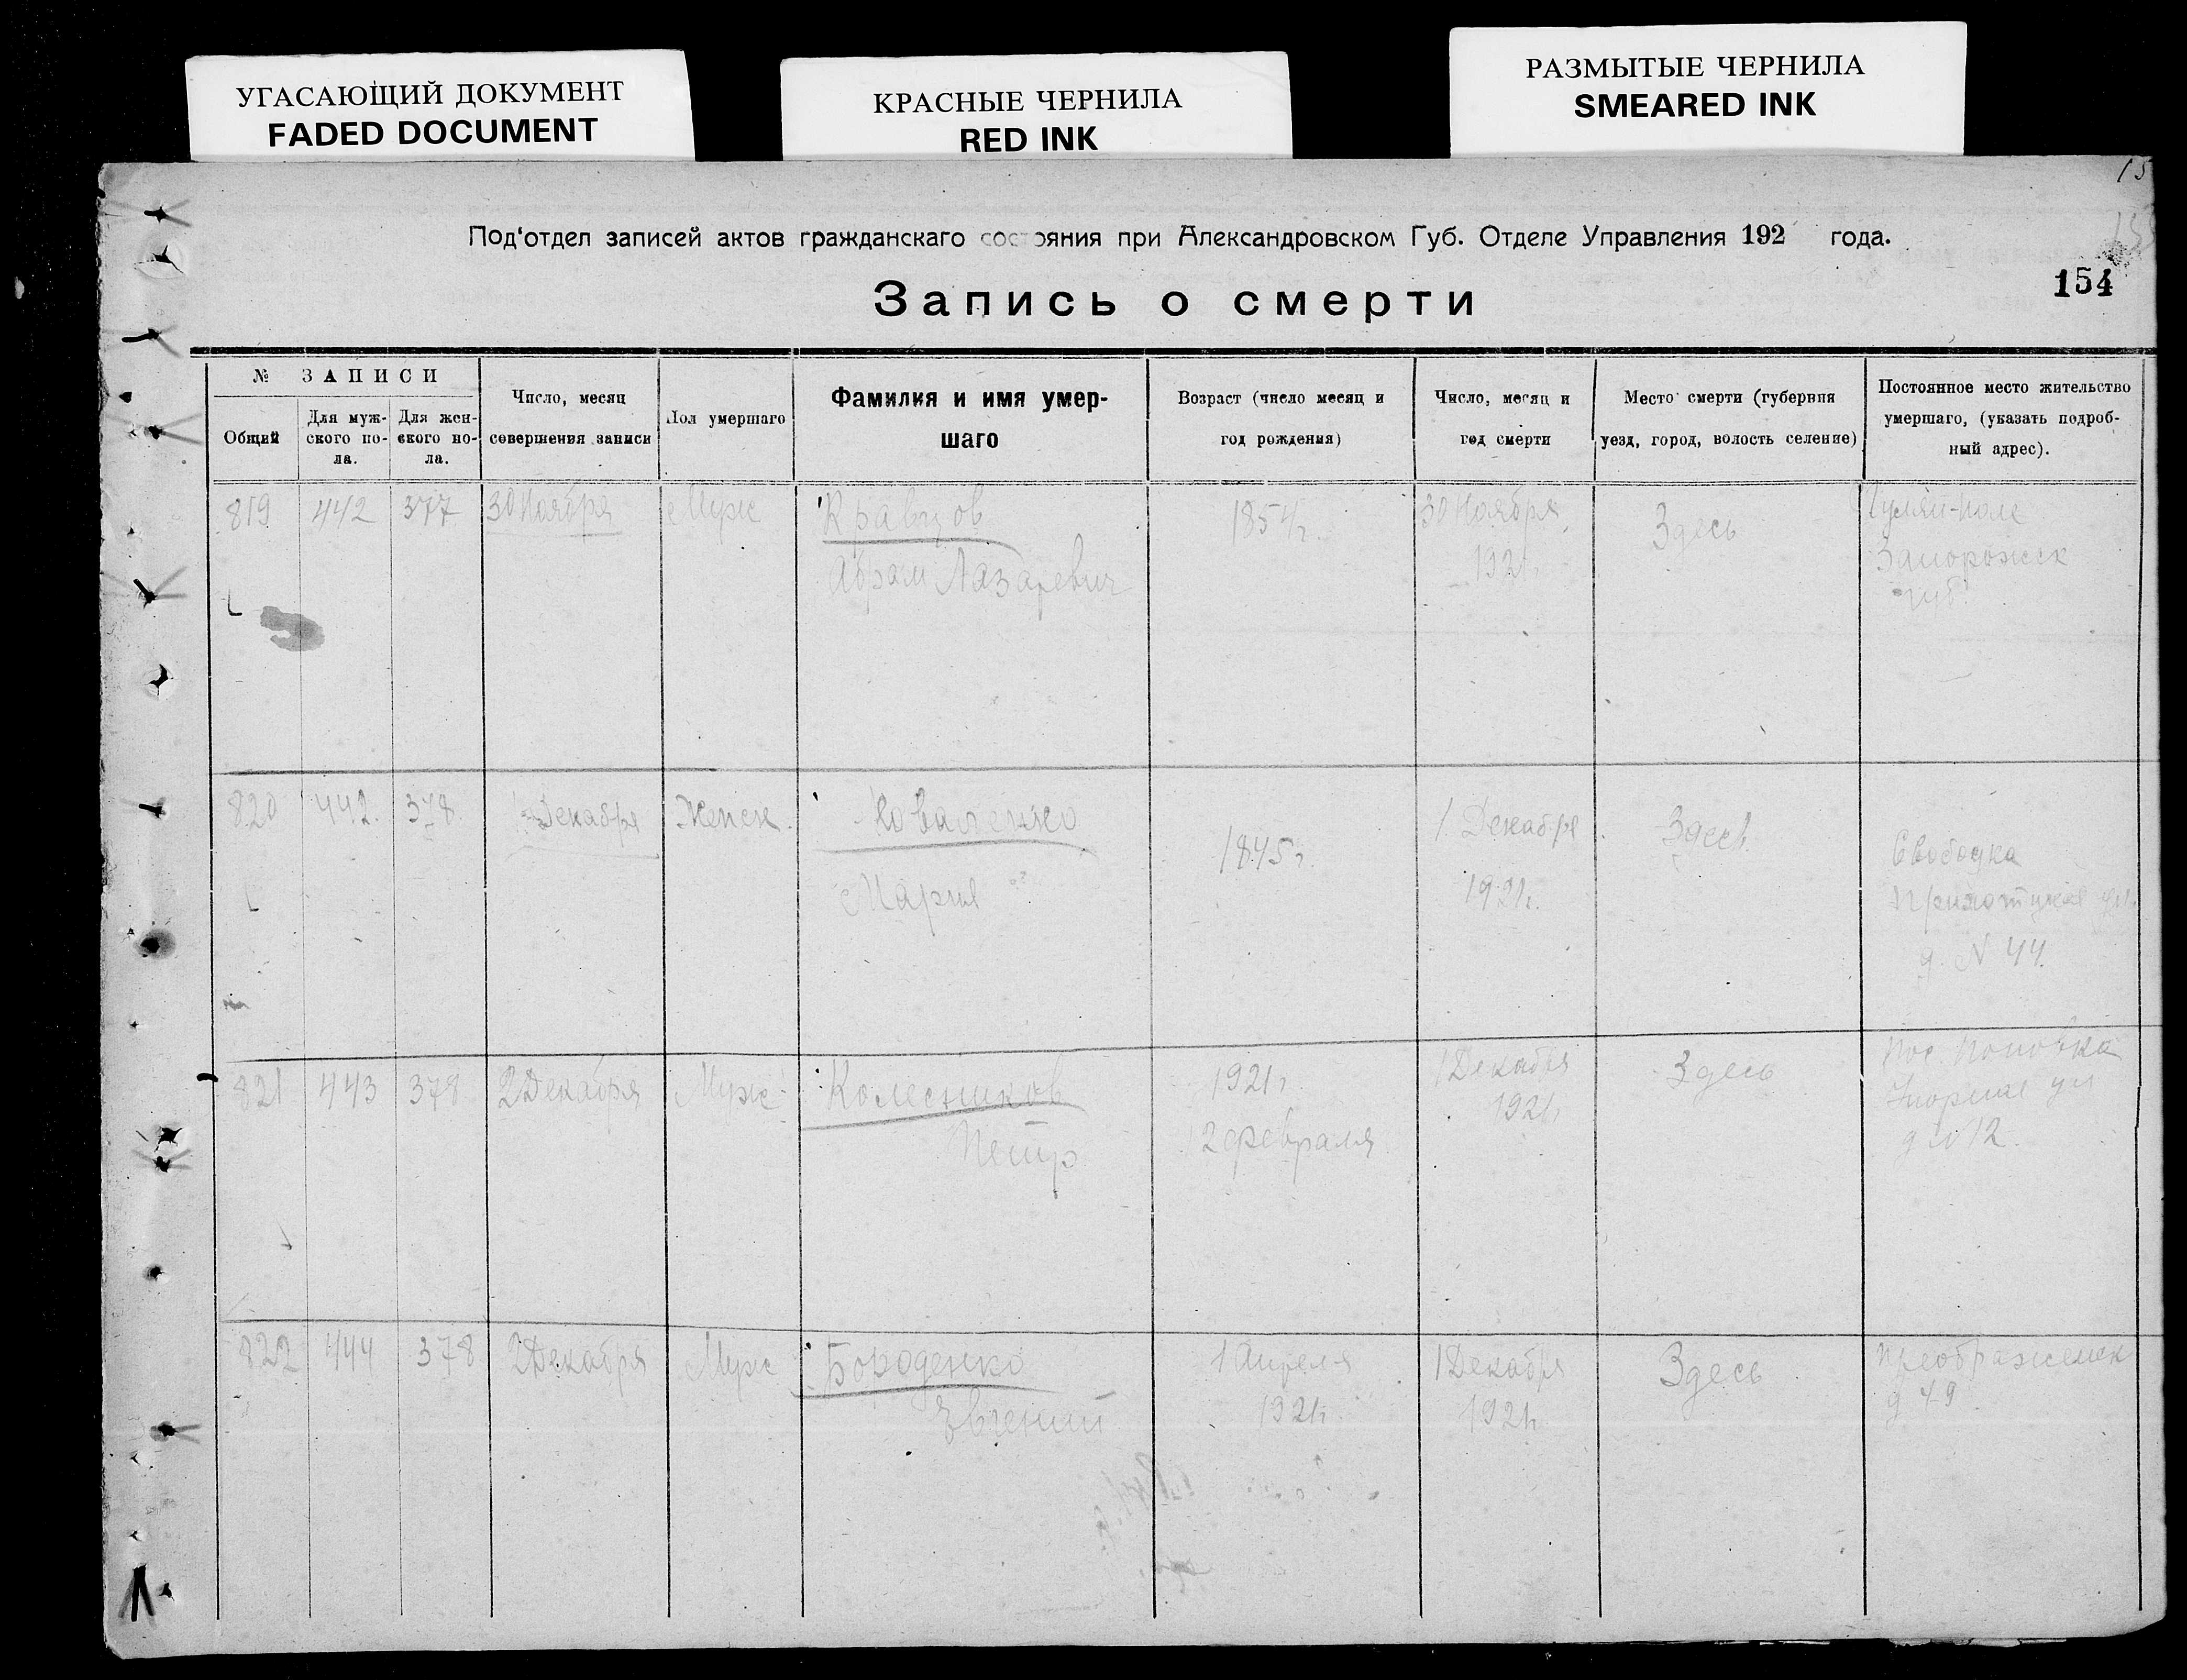 УГАСАЮЩИЙ ДОКУМЕНТ
FADED DOCUMENT
КРАСНЫЕ ЧЕРНИЛА
RED INK
РАЗМЫТЫЕ ЧЕРНИЛА
SMEARED INK
15
Под'отдел записей актов гражданскаго состояния при Александровском Губ. Отделе Управления 192 года.
154
Запись о смерти
№ ЗАПИСИ
Общий
Для муж-
ского по-
ла.
Для жен-
ского по-
ла.
Число, месяц
совершения записи
Пол умершаго
Фамилия и имя умер-
шаго
Возраст (число месяц и
год рождения)
Число, месяц и
год смерти
Место смерти (губерния
уезд, город, волость селение)
Постоянное место жительство
умершаго, (указать подроб-
ный адрес).
819 442 377 30 Ноября Муж Кравцов
Абрам Лазаревич
1854 г.
30 Ноября
1921г.
Здесь
Гуляй-Поле
Запорожск
губ.
820 442. 378 Декабря Женск. Коваленко
Мария
1845 г.
1 Декабря
1921г.
Здесь
Слободка
ул.
д. N 44.
821 443 378 2 Декабря Муж Колесников
Петр
1921 г
12 февраля
1 Декабря
1921г
Здесь
пос.
ул
д N 12.
822 444 378 2 Декабря Муж Бороденко
Евгений
1 Апреля
1921г.
1 Декабря
1921г
Здесь
Преображенск
д 49.